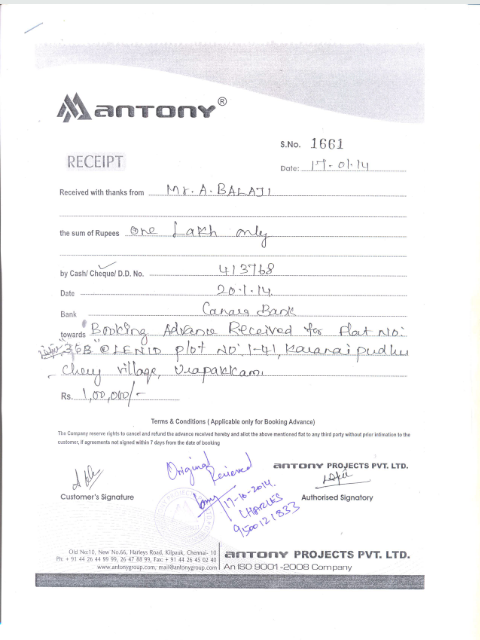 ANTONY®
S.No. 1661
RECEIPT
Date: 17-01-14
Received with thanks from Mr. A. BALAJI
the sum of Rupees One Lakh only
by Cash/ Cheque/ D.D. No. 413768
Date 20.1.14
Bank Canara Bank
towards Booking Advance Received for Flat No:
36B @ plot No: 1-41, Karanai pudhu
chery village, Urapakkam
Rs. 1,00,000/-
Terms & Conditions ( Applicable only for Booking Advance)
The Company reserve rights to cancel and refund the advance received hereby and allot the above mentioned flat to any third party without prior intimation to the
customer, if agreements not signed within 7 days from the date of booking
Original
Received
ANTONY PROJECTS PVT. LTD.
17-10-2014
CHARLES
9500121333
Customer's Signature
Authorised Signatory
Old No:10, New No.66, Harleys Road, Kilpauk, Chennai- 10
Ph: + 91 44 26 44 99 99, 26 47 88 99, Fax: + 91 44 26 45 02 40
www.antonygroup.com, mail@antonygroup.com
ANTONY PROJECTS PVT. LTD.
An ISO 9001-2008 Company